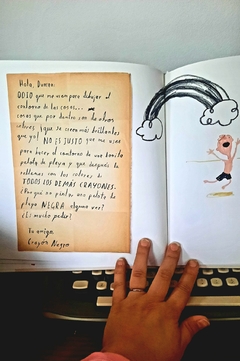 Hola, Duncan:
ODIO que me usen para dibujar el
contorno de las cosas...
cosas que por dentro son de otros
colores, ¡que se creen más brillantes
que yo! NO ES JUSTO que me uses
para hacer el contorno de una bonita
pelota de playa y que después la
rellenes con los colores de
TODOS LOS DEMÁS CRAYONES.
¿Por qué no pintas una pelota de
playa NEGRA alguna vez?
¿Es mucho pedir?
Tu amigo,
Crayón Negro